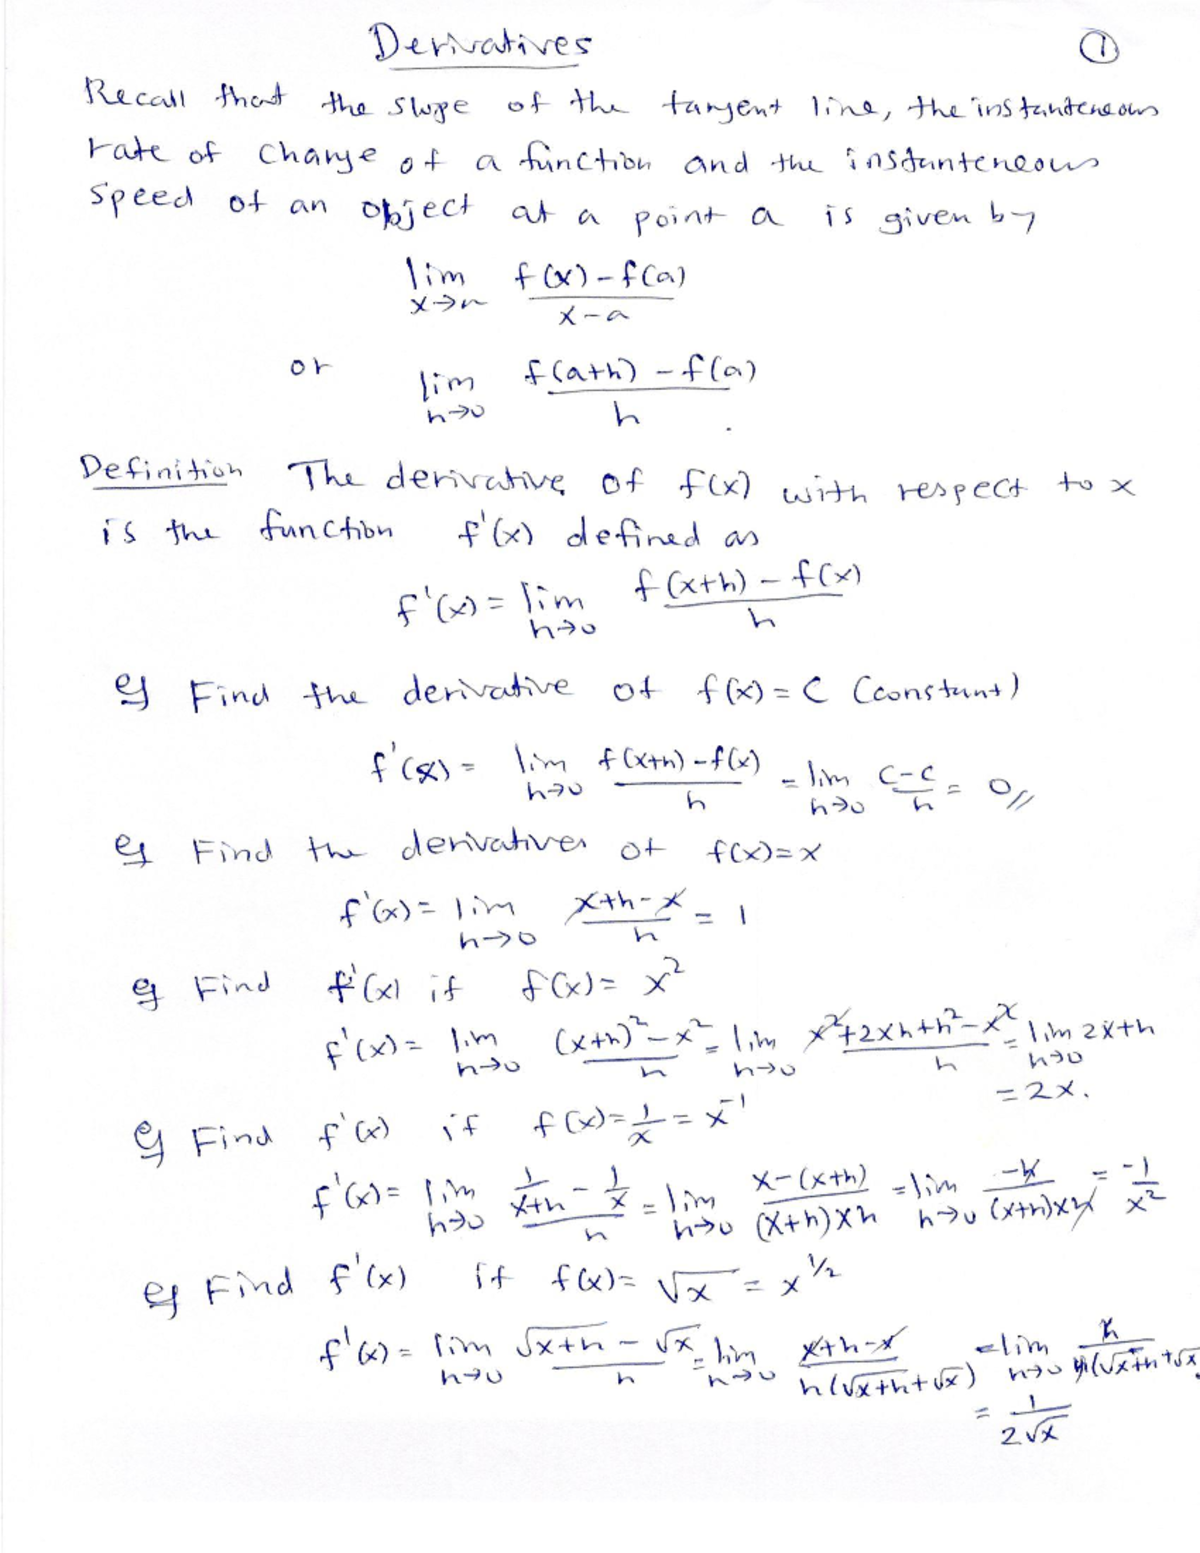 Derivatives
①
Recall that the slope of the tangent line, the instanteneous
rate of change of a function and the instanteneous
speed of an object at a point a is given by
lim x→a (f(x) - f(a))/(x-a)
or lim h→0 (f(a+h) - f(a))/h .
Definition The derivative of f(x) with respect to x
is the function f'(x) defined as
f'(x) = lim h→0 (f(x+h) - f(x))/h
eg Find the derivative of f(x) = C (constant)
f'(x) = lim h→0 (f(x+h) - f(x))/h = lim h→0 (C-C)/h = 0//
eg Find the derivatives of f(x)=x
f'(x) = lim h→0 (x+h-x)/h = 1
eg Find f'(x) if f(x) = x²
f'(x) = lim h→0 ((x+h)² - x²)/h = lim h→0 (x²+2xh+h²-x²)/h = lim h→0 2x+h
= 2x.
eg Find f'(x) if f(x) = 1/x = x⁻¹
f'(x) = lim h→0 (1/(x+h) - 1/x)/h = lim h→0 (x-(x+h))/((x+h)xh) = lim h→0 -h/((x+h)xh) = -1/x²
eg Find f'(x) if f(x) = √x = x^1/2
f'(x) = lim h→0 (√x+h - √x)/h = lim h→0 (x+h-x)/(h(√x+h+√x)) = lim h→0 h/(h(√x+h+√x
= 1/(2√x)